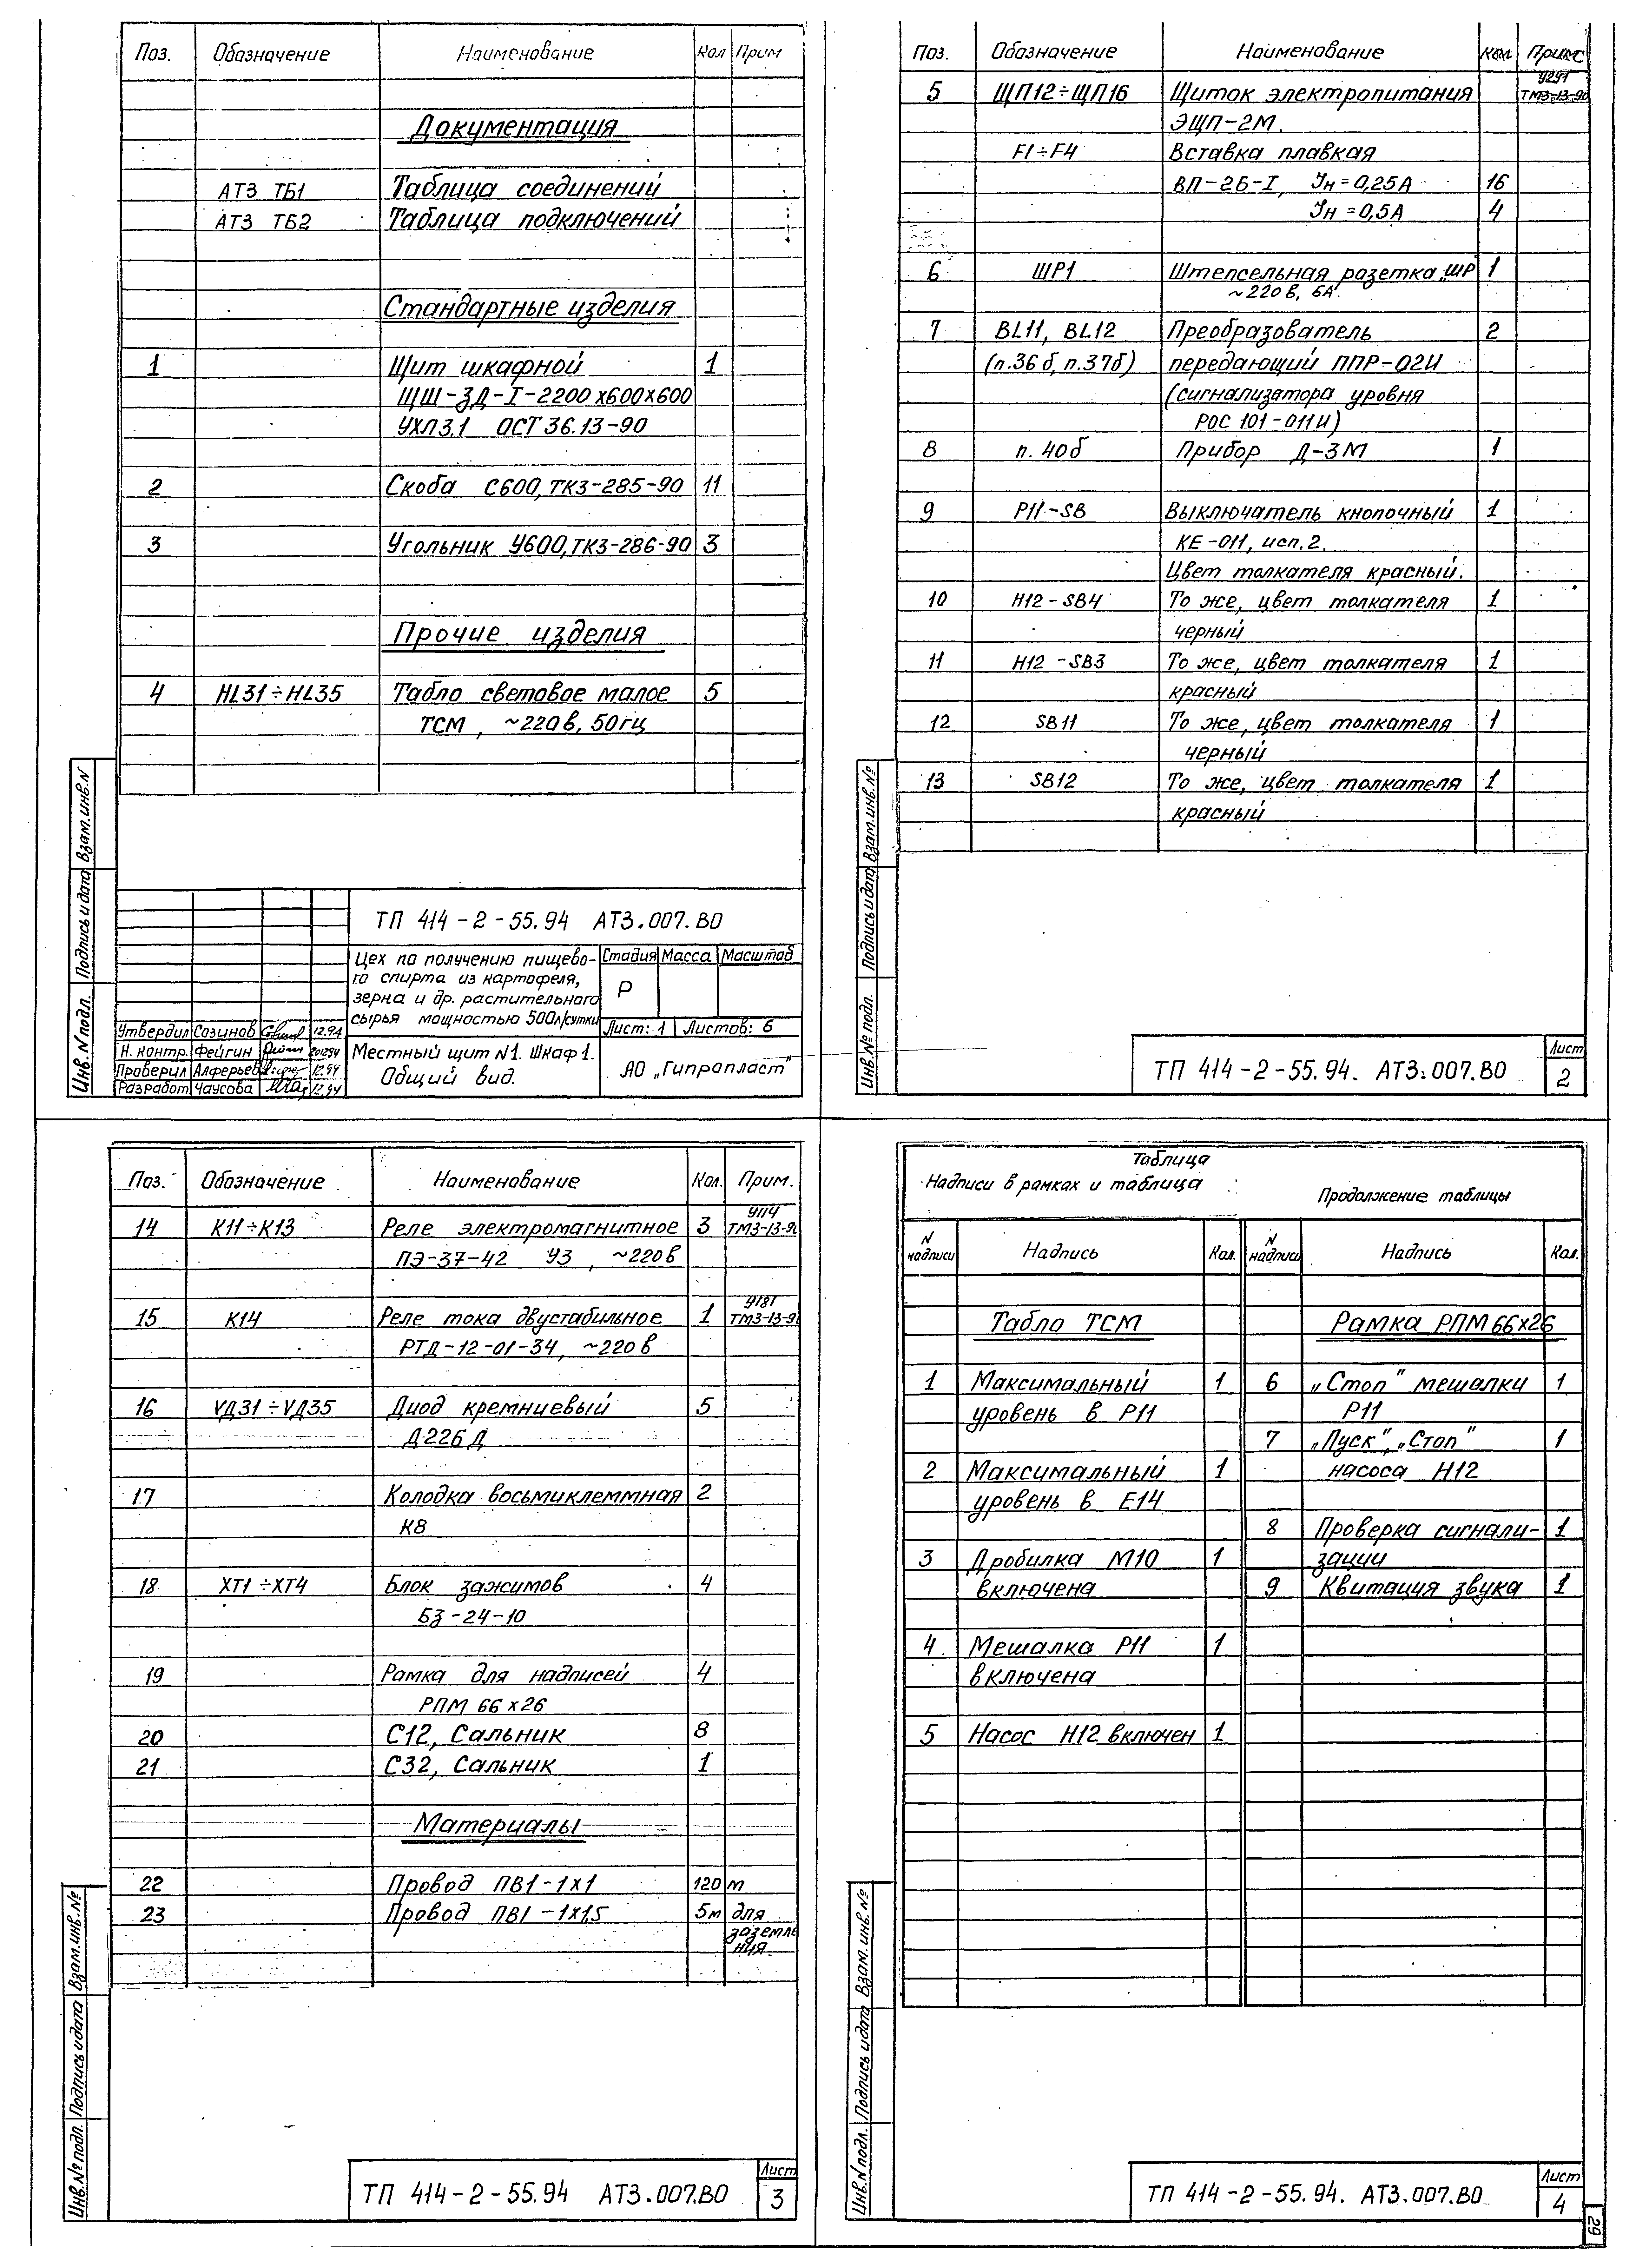 Поз. Обозначение Наименование Кол Прим
Документация
АТ3 ТБ1 Таблица соединений
АТ3 ТБ2 Таблица подключений
Стандартные изделия
1 Щит шкафной 1
ЩШ-ЗД-I-2200х600х600
УХЛ3.1 ОСТ 36.13-90
2 Скоба С600, ТК3-285-90 11
3 Угольник У600, ТК3-286-90 3
Прочие изделия
4 HL31÷HL35 Табло световое малое 5
ТСМ, ~220в, 50гц
Взам.инв.N
Подпись и дата
Инв.N подл.
ТП 414-2-55.94 АТ3.007.ВО
Цех по получению пищево-
го спирта из картофеля,
зерна и др. растительного
сырья мощностью 500л/сутки
Стадия Масса Масштаб
Р
Лист: 1 Листов: 6
Утвердил Созинов 12.94
Н. контр. Фейгин 201294
Проверил Алферьев 12.94
Разработ. Чаусова 12.94
Местный щит N1. Шкаф 1.
Общий вид.
АО „Гипропласт"
Поз. Обозначение Наименование Кол Прим
5 ЩП12÷ЩП16 Щиток электропитания У291
ТМ3-13-90
ЭЩП-2М.
F1÷F4 Вставка плавкая
ВП-2Б-I, Iн=0,25А 16
Iн=0,5А 4
6 ШР1 Штепсельная розетка „ШР 1
~220в, 6А.
7 BL11, BL12 Преобразователь 2
(п.36б, п.37б) передающий ППР-02И
(сигнализатора уровня
РОС 101-011И)
8 п. 40б Прибор Д-3М 1
9 P11-SB Выключатель кнопочный 1
КЕ-011, исп.2.
Цвет толкателя красный.
10 H12-SB4 То же, цвет толкателя 1
черный
11 H12-SB3 То же, цвет толкателя 1
красный
12 SB11 То же, цвет толкателя 1
черный
13 SB12 То же, цвет толкателя 1
красный
Взам.инв.№
Подпись и дата
Инв.№ подл.
ТП 414-2-55.94. АТ3.007.ВО
Лист
2
Поз. Обозначение Наименование Кол. Прим.
14 К11÷К13 Реле электромагнитное 3 У114
ТМ3-13-90
ПЭ-37-42 У3, ~220в
15 К14 Реле тока двустабильное 1 У181
ТМ3-13-90
РТД-12-01-34, ~220в
16 VД31÷VД35 Диод кремниевый 5
Д226Д
17 Колодка восьмиклеммная 2
К8
18 XT1÷XT4 Блок зажимов 4
БЗ-24-10
19 Рамка для надписей 4
РПМ 66х26
20 С12, Сальник 8
21 С32, Сальник 1
Материалы
22 Провод ПВ1-1х1 120 м
23 Провод ПВ1-1х1,5 5м для
заземле
ния.
Взам.инв.№
Подпись и дата
Инв.№ подл.
ТП 414-2-55.94 АТ3.007.ВО
Лист
3
Таблица
Надписи в рамках и таблица
Продолжение таблицы
N надписи Надпись Кол. N надписи Надпись Кол.
Табло ТСМ Рамка РПМ 66х26
1 Максимальный 1 6 „Стоп" мешалки 1
уровень в Р11 Р11
7 „Пуск", „Стоп" 1
2 Максимальный 1 насоса Н12
уровень в Е14
8 Проверка сигнали- 1
3 Дробилка М10 1 зации
включена 9 Квитация звука 1
4 Мешалка Р11 1
включена
5 Насос Н12 включен 1
Взам.инв.№
Подпись и дата
Инв.N подл.
ТП 414-2-55.94. АТ3.007.ВО
Лист
4
29